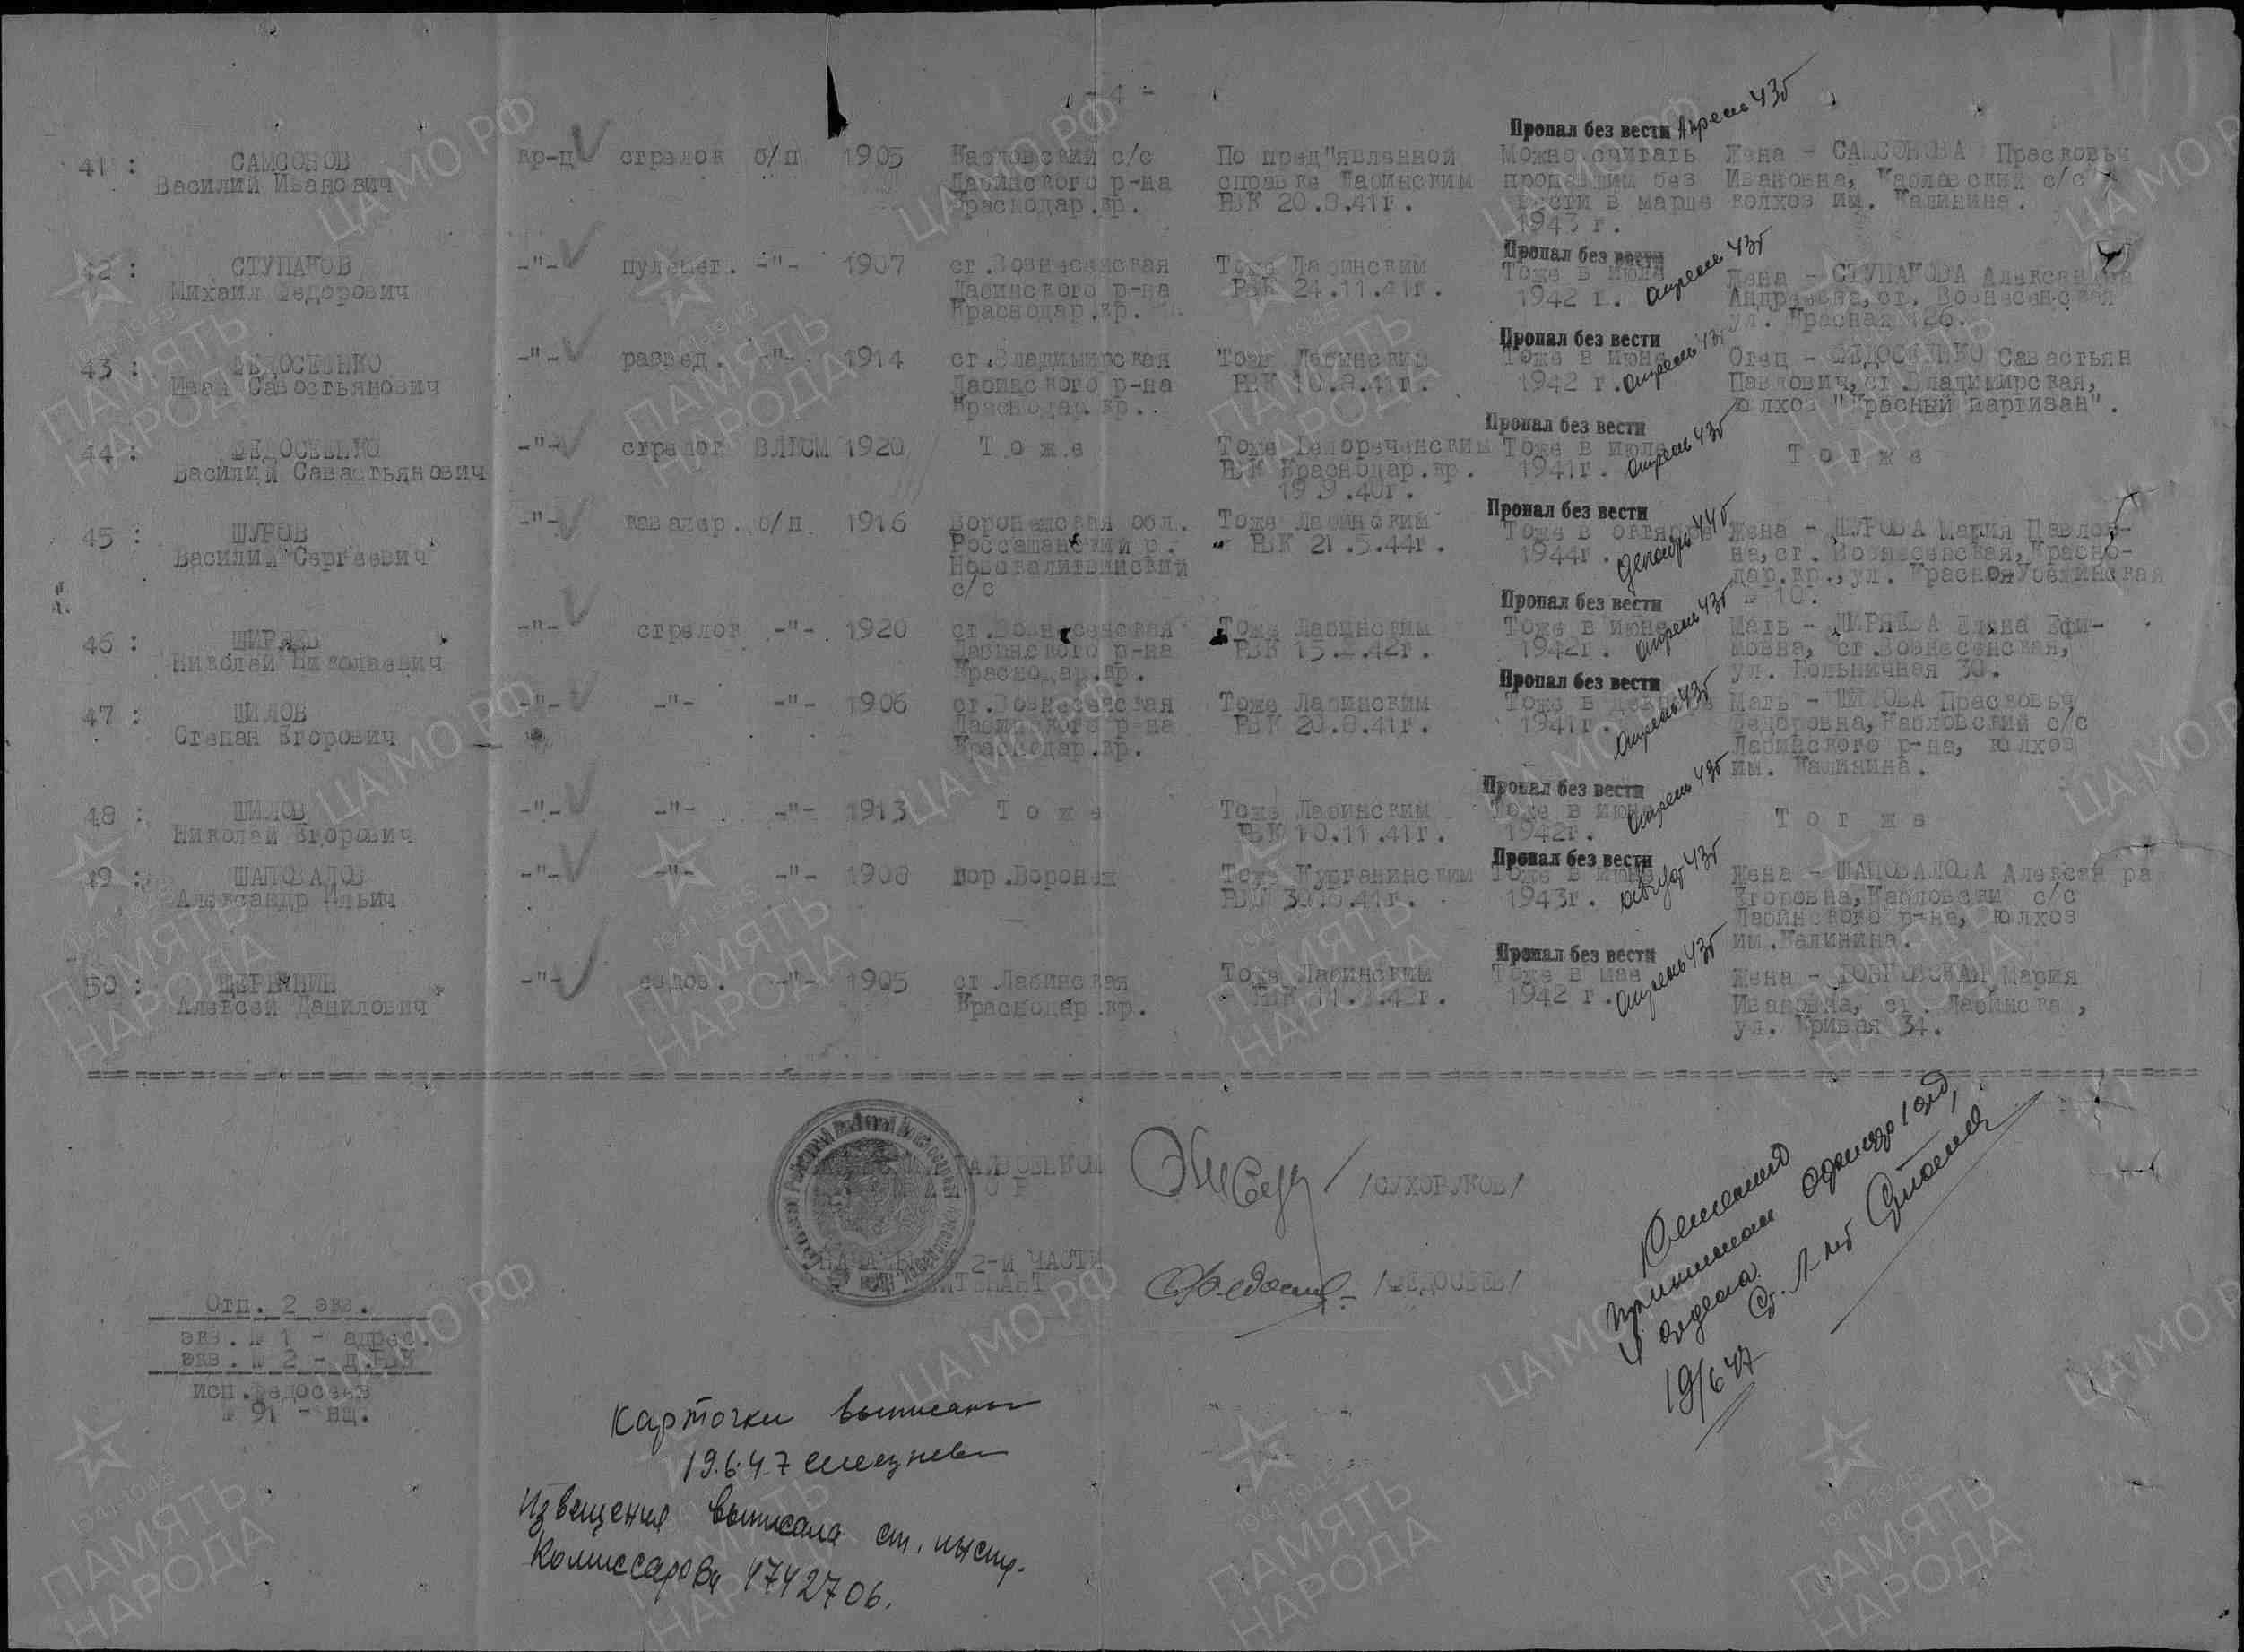 - 4 -
Пропал без вести Апрель 43г
41 : САМСОНОВ кр-ц стрелок б/п 1905 Касловский с/с По пред"явленной Можно считать Жена - САМСОНОВА Прасковья
Василий Иванович Лабинского р-на справке Лабинским пропавшим без Ивановна, Касловский с/с
Краснодар.кр. РВК 20.8.41г. вести в марте колхоз им. Калинина.
1943 г.
Пропал без вести апрель 43г
42 : СТУПАКОВ -"- пулемет. -"- 1907 ст.Вознесенская Тоже Лабинским Тоже в июне Жена - СТУПАКОВА Александра
Михаил Федорович Лабинского р-на РВК 24.11.41г. 1942 г. Андреевна, ст. Вознесенская
Краснодар.кр. ул. Красная 126.
Пропал без вести апрель 43г
43 : ФЕДОСЕЕНКО -"- развед. -"- 1914 ст.Владимирская Тоже Лабинским Тоже в июне Отец - ФЕДОСЕЕНКО Савастьян
Иван Савостьянович Лабинского р-на РВК 10.8.41г. 1942 г. Павлович, ст.Владимирская,
Краснодар.кр. колхоз "Красный партизан".
Пропал без вести апрель 43г
44 : ФЕДОСЕЕНКО -"- стрелок ВЛКСМ 1920 Т о ж е Тоже Белореченским Тоже в июле Т о т ж е
Василий Савастьянович РВК Краснодар.кр. 1941г.
19.9.40г.
Пропал без вести декабрь 44г
45 : ШУРОВ -"- кавалер. б/п 1916 Воронежская обл. Тоже Лабинским Тоже в октябре Жена - ШУРОВА Мария Павлов-
Василий Сергеевич Россашанский р. РВК 21.5.44г. 1944г. на, ст. Вознесенская, Красно-
Новокалитвинский дар.кр., ул. Красноя Убежинская
с/с № 10.
Пропал без вести апрель 43г
46 : ШИРЯЕВ -"- стрелок -"- 1920 ст.Вознесенская Тоже Лабинским Тоже в июне Мать - ШИРЯЕВА Елена Ефи-
Николай Николаевич Лабинского р-на РВК 15. .42г. 1942г. мовна, ст.Вознесенская,
Краснодар.кр. ул. Больничная 30.
Пропал без вести апрель 43г
47 : ШИЛОВ -"- -"- -"- 1906 ст.Вознесенская Тоже Лабинским Тоже в декабре Мать - ШИЛОВА Прасковья
Степан Егорович Лабинского р-на РВК 20.8.41г. 1941г. Федоровна, Касловский с/с
Краснодар.кр. Лабинского р-на, колхоз
им. Калинина.
Пропал без вести апрель 43г
48 : ШИЛОВ -"- -"- -"- 1913 Т о ж е Тоже Лабинским Тоже в июне Т о т ж е
Николай Егорович РВК 10.11.41г. 1942г.
Пропал без вести август 43г
49 : ШАПОВАЛОВ -"- -"- -"- 1908 гор.Воронеж Тоже Курганинским Тоже в июне Жена - ШАПОВАЛОВА Алексан ра
Александр Ильич РВК 30. .41г. 1943г. Егоровна, Касловский с/с
Лабинского р-на, колхоз
им.Калинина.
Пропал без вести апрель 43г
50 : ЩЕРБИНИН -"- ездов. -"- 1905 ст Лабинская Тоже Лабинским Тоже в мае Жена - Мария
Алексей Данилович Краснодар.кр. РВК 11. .42г. 1942 г. Ивановна, ст. Лабинска ,
ул. Кривая 34.
/СУХОРУКОВ/
НАЧАЛЬНИК 2-й ЧАСТИ
/ФЕДОСЕЕВ/
Отп. 2 экз.
экз. № 1 - адрес.
экз. № 2 - д.РВК
исп.Федосеев
№ 91 - нщ.
принимал
отдела
Ст. Л-нт
19/6 47
Карточки выписаны
19.6.47
Извещения выписала ст. инстр.
Комиссарова 1742706.
ЦА МО РФ
ПАМЯТЬ
НАРОДА
1941-1945